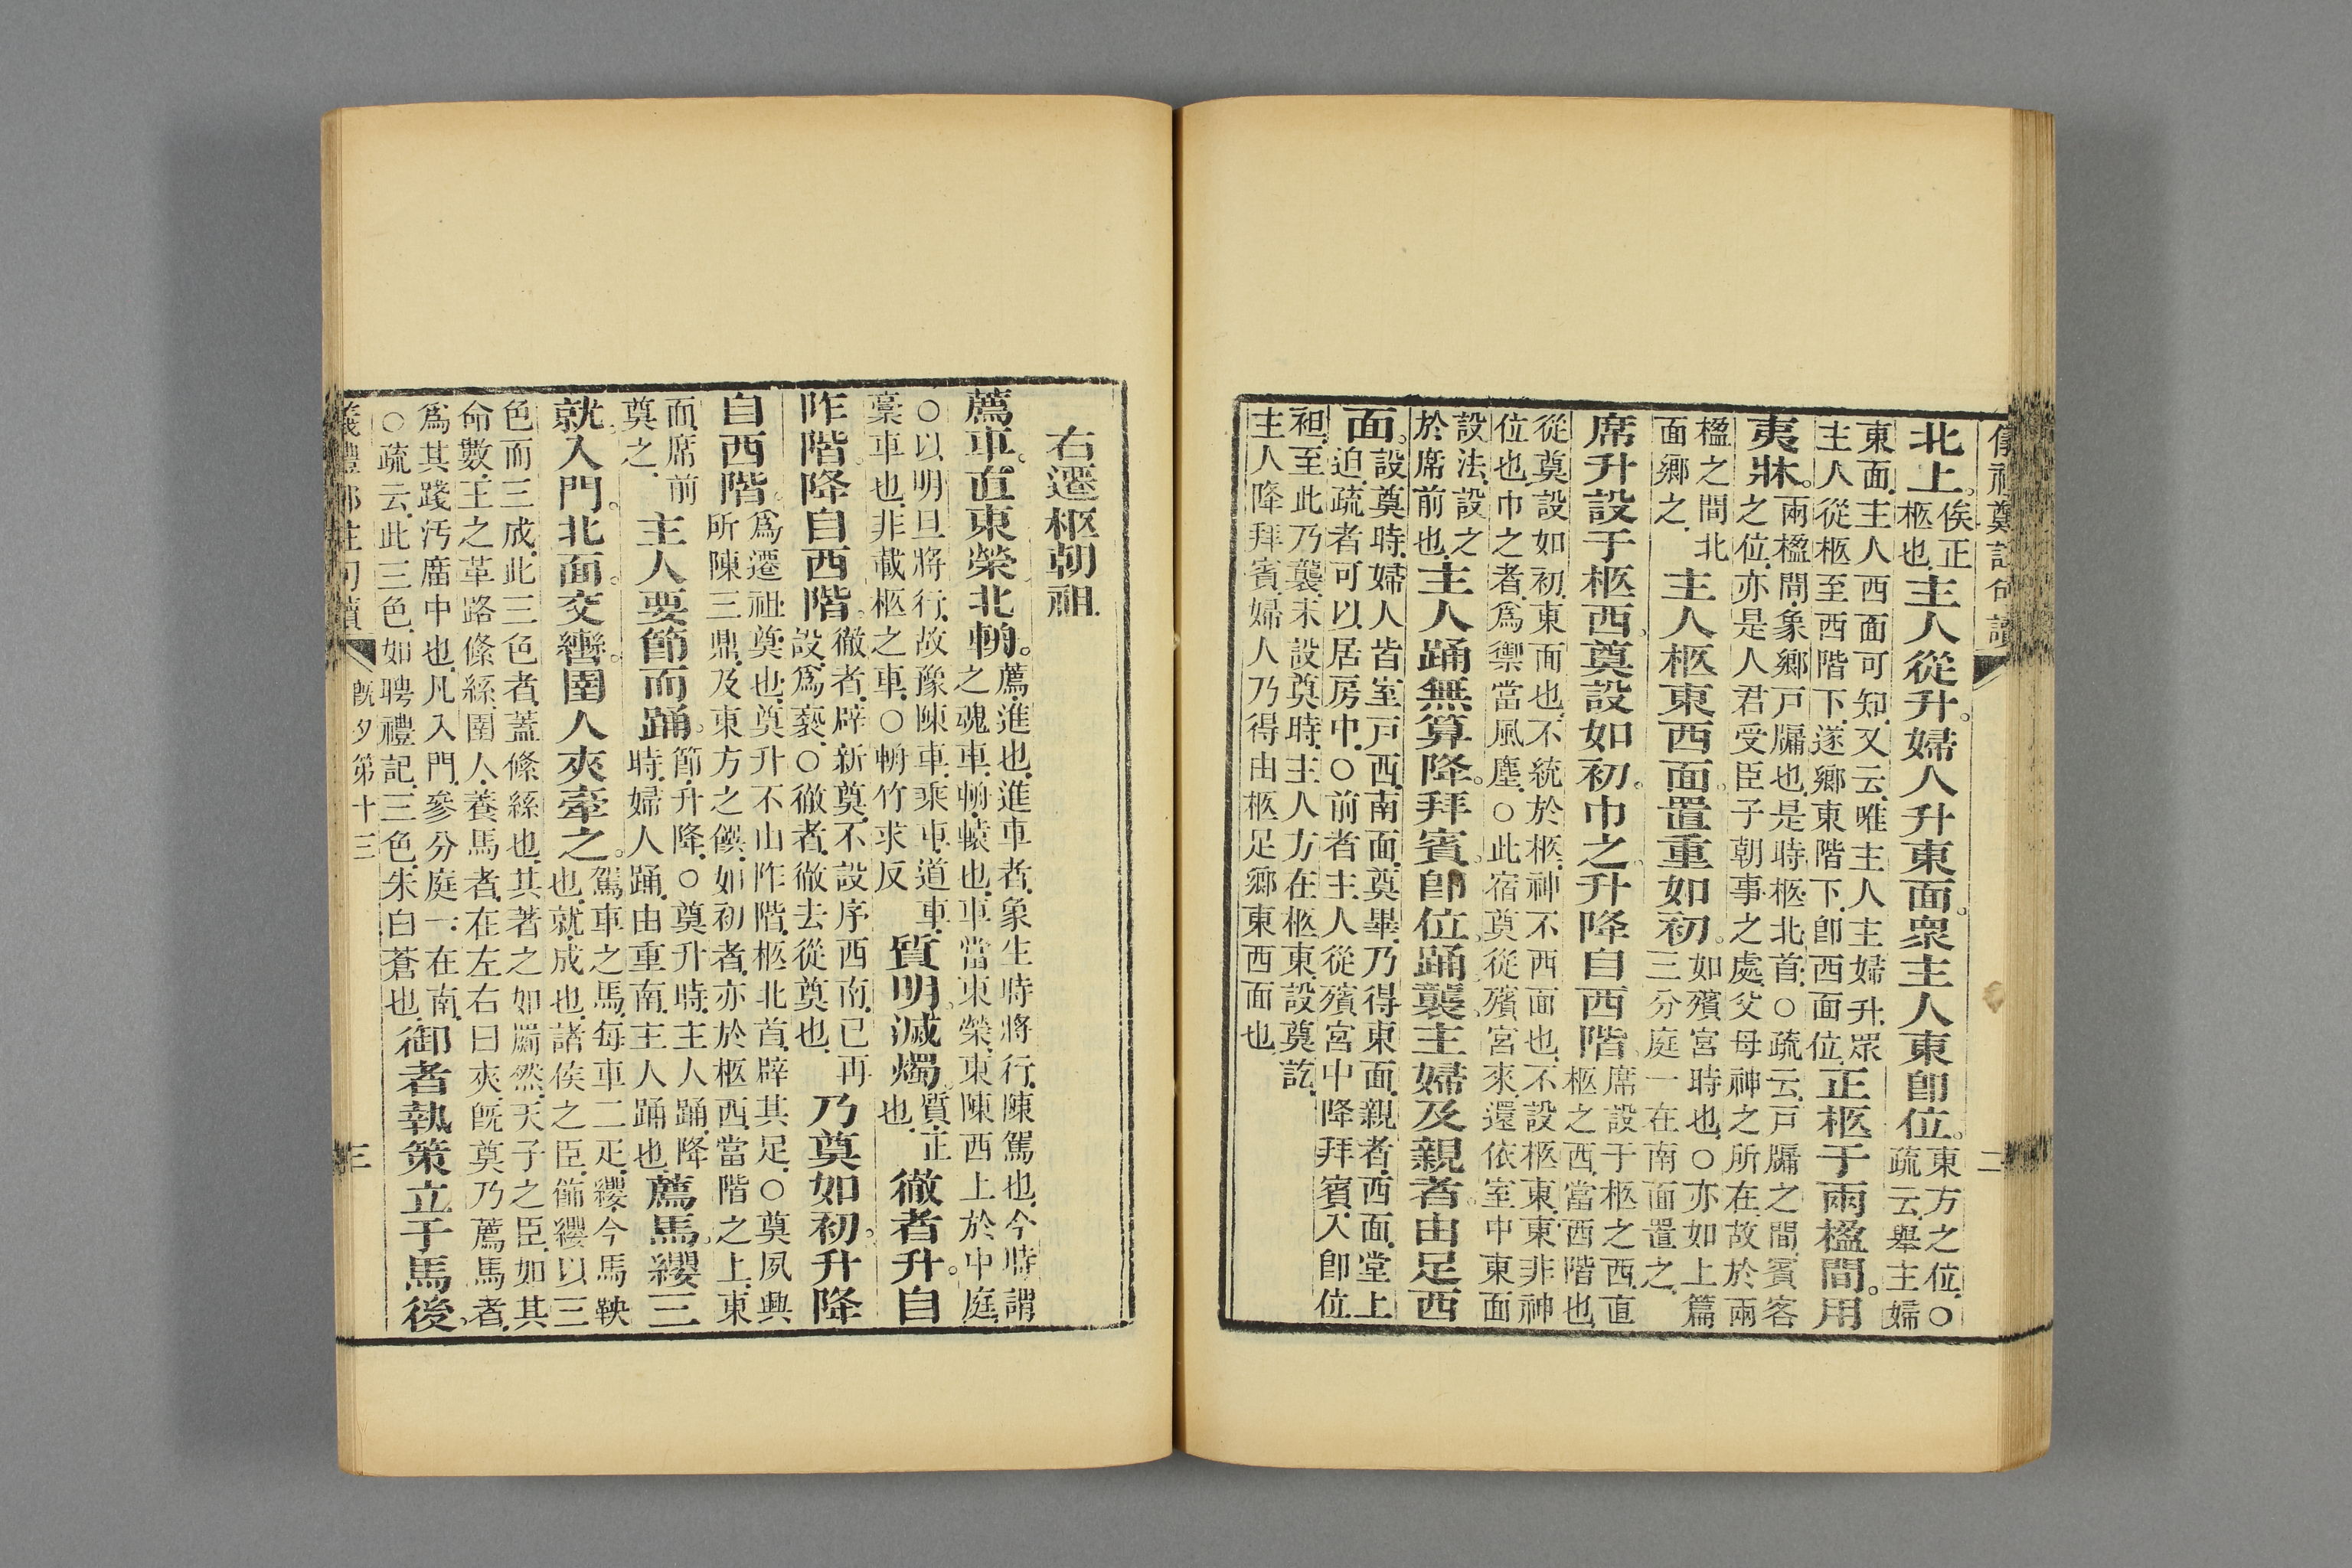 儀禮鄭註句讀 二
北上。俟正柩也主人從升。婦人升東面。衆主人東卽位。東方之位〇疏云舉主婦
東面主人西面可知又云唯主人主婦升眾主人從柩至西階下遂鄉東階下卽西面位正柩于兩楹間。用
夷牀。兩楹間象鄉戶牖也是時柩北首〇疏云戶牖之間賓客之位亦是人君受臣子朝事之處父母神之所在故於兩
楹之間北面鄉之主人柩東西面。置重如初。如殯宮時也〇亦如上篇三分庭一在南面置之
席升設于柩西。奠設如初。巾之。升降自西階。席設于柩之西直柩之西當西階也
從奠設如初東面也不統於柩神不西面也不設柩東東非神位也巾之者爲禦當風塵〇此宿奠從殯宮來還依室中東面
設法設之於席前也主人踊無算降。拜賓。卽位踊襲。主婦及親者。由足西
面。設奠時婦人皆室戶西南面奠畢乃得東面親者西面堂上迫疏者可以居房中〇前者主人從殯宮中降拜賓入卽位
袒至此乃襲未設奠時主人方在柩東設奠訖主人降拜賓婦人乃得由柩足鄉東西面也
右遷柩朝祖
薦車。直東榮北輈。薦進也進車者象生時將行陳駕也今時謂之魂車輈轅也車當東榮東陳西上於中庭
〇以明旦將行故豫陳車乘車道車稾車也非載柩之車〇輈竹求反質明。滅燭。質正也徹者升。自
阼階。降自西階。徹者辟新奠不設序西南已再設爲褻〇徹者徹去從奠也乃奠如初。升降
自西階。爲遷祖奠也奠升不由阼階柩北首辟其足〇奠夙興所陳三鼎及東方之饌如初者亦於柩西當階之上東
面席前奠之主人要節而踊。節升降〇奠升時主人踊降時婦人踊由重南主人踊也薦馬。纓三
就。入門。北面。交轡。圉人夾牽之。駕車之馬每車二疋纓今馬鞅也就成也諸侯之臣飾纓以三
色而三成此三色者蓋絛絲也其著之如罽然天子之臣如其命數王之革路絛絲圉人養馬者在左右曰夾旣奠乃薦馬者
爲其踐汚廟中也凡入門參分庭一在南〇疏云此三色如聘禮記三色朱白蒼也御者執策立于馬後。
儀禮鄭註句讀 旣夕第十三 三